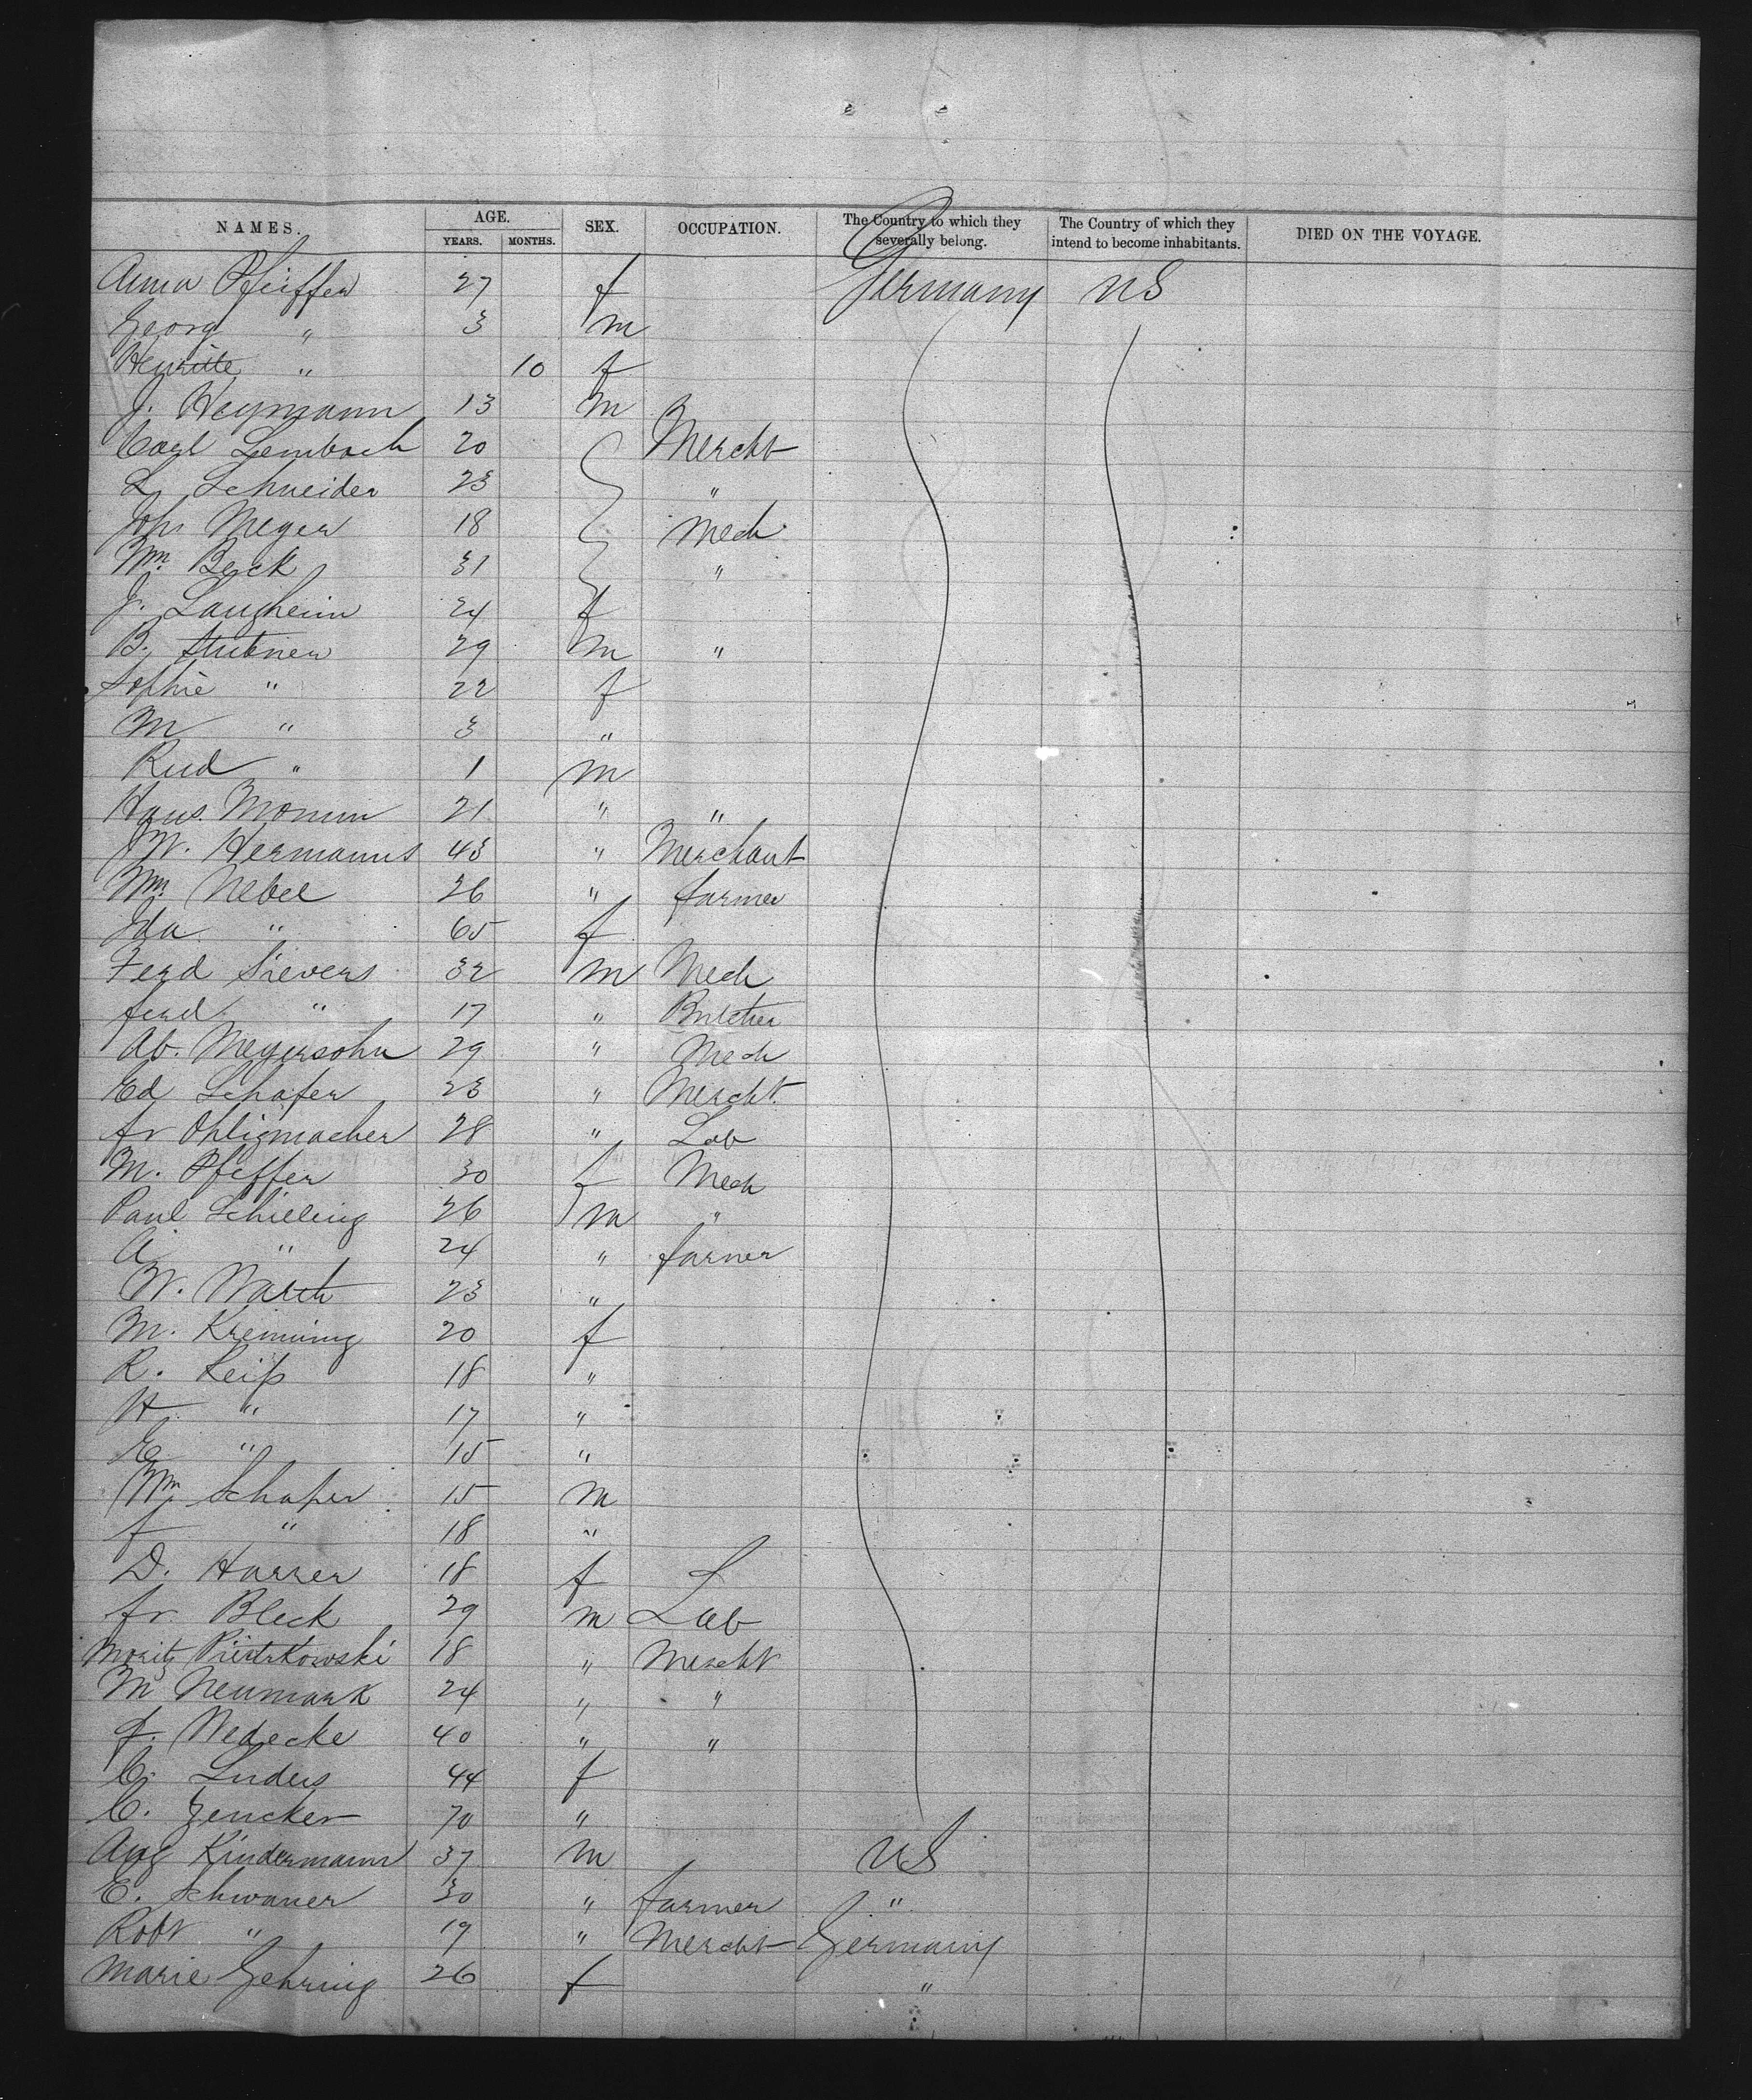 NAMES. AGE. SEX. OCCUPATION. The Country to which they severally belong. The Country of which they intend to become inhabitants. DIED ON THE VOYAGE.
YEARS. MONTHS.
Anna Pfeiffer 27 f Germany US
Georg " 3 m
Henritte " 10 f
J. Heymann 13 m
Carl Lembach 20 Mercht
L. Schneider 23 "
Joh. Meyer 18 Mech
Wm. Beck 31 "
J. Laugheim 24 f
B. Stubner 29 m "
Sophie " 22 f
M " 3 "
Rud " 1 m
Hans. Momm 21 " "
W. Hermanns 43 " Merchant
Wm. Nebel 26 " farmer
Ida " 65 f
Ferd Sievers 32 m Mech
ferd " 17 " Butcher
Ab. Meyersohn 29 " Mech
Ed Schafer 23 " Mercht.
fr Ohligmacher 28 " Lab
M. Pfeffer 30 f Mech
Paul Schilling 26 m "
A " 24 " farmer
W. Warth 23 "
M. Kremming 20 f
R. Reiß 18 "
H " 17 "
E " 15 "
Wm. Schafer 15 m
f " 18 "
D. Harrer 18 f
fr. Bleck 29 m Lab
Moritz Piotrkowski 18 " Mercht
M Neumark 24 " "
f. Wedecke 40 " "
C. Luders 44 f
C. Jencker 70 "
Aug Kindermann 37 m US
E. Schwaner 30 " farmer "
Robt " 19 " Mercht Germany
Marie Gehring 26 f "